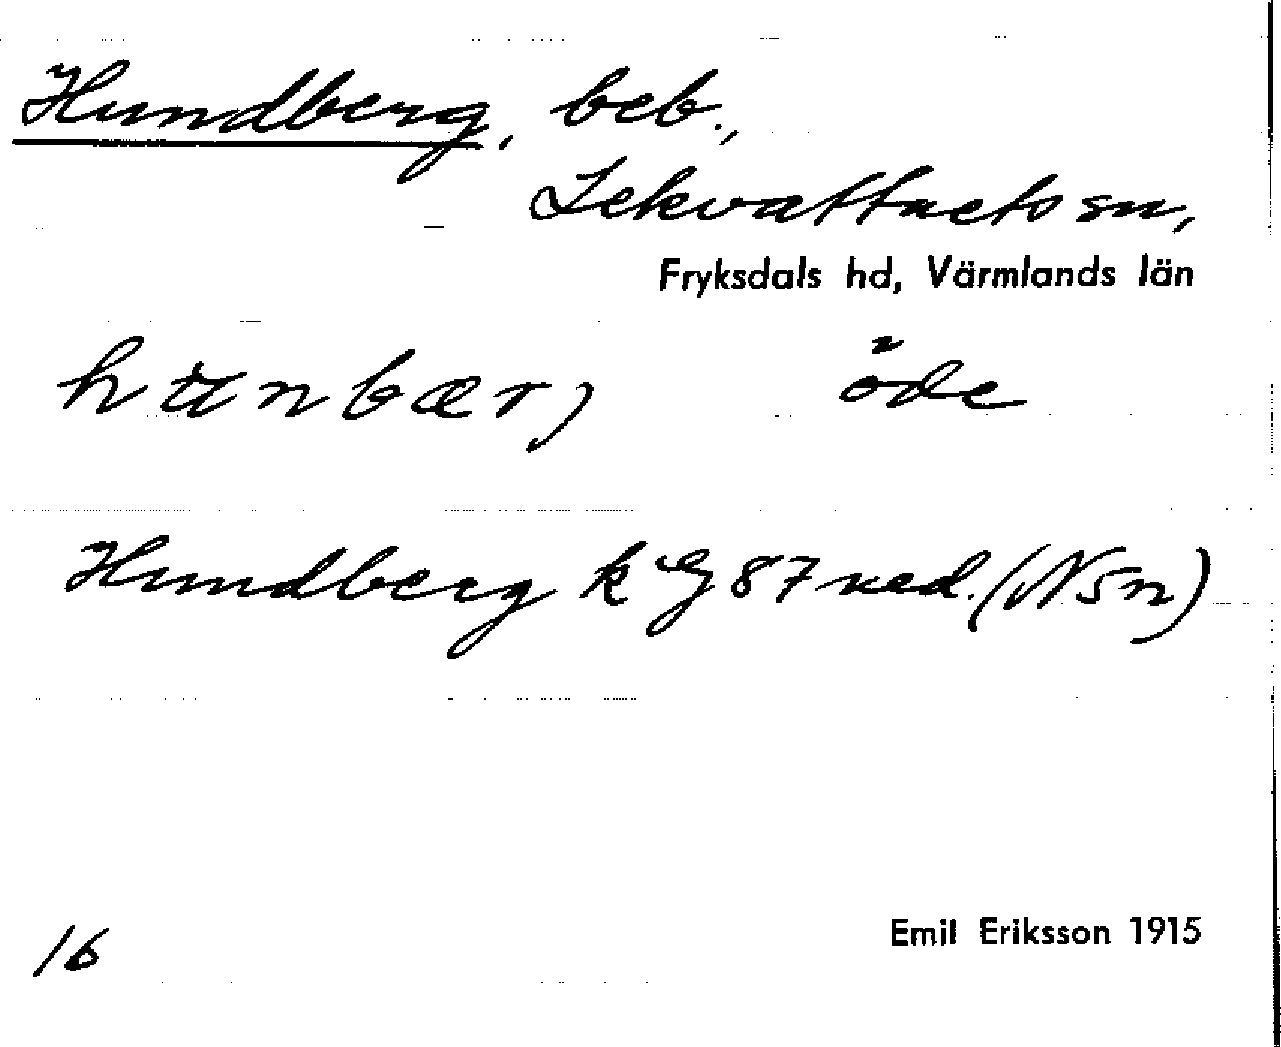 Hundberg, beb.,
Lekvattnets sn,
Fryksdals hd, Värmlands län
öde
Hundberg k Ug 87 ned. (NSn)
16
Emil Eriksson 1915